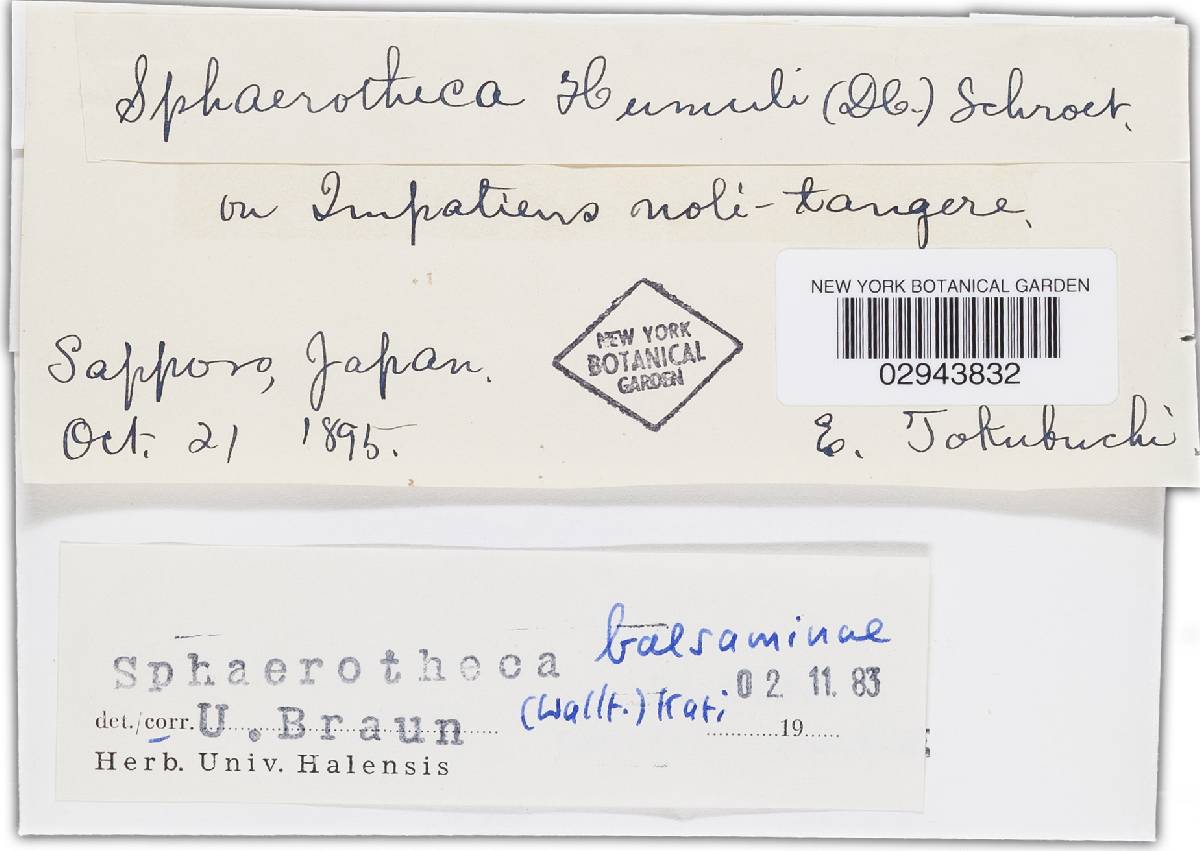 Sphaerotheca Humuli (DC.) Schroet.
on Impatiens noli-tangere.
Sapporo, Japan.
Oct. 21 1895.
NEW YORK
BOTANICAL
GARDEN
NEW YORK BOTANICAL GARDEN
02943832
E. Tokubuchi.
Sphaerotheca balsaminae
(Wallr.) Kari
02 11. 83
det./corr. U. Braun 19
Herb. Univ. Halensis